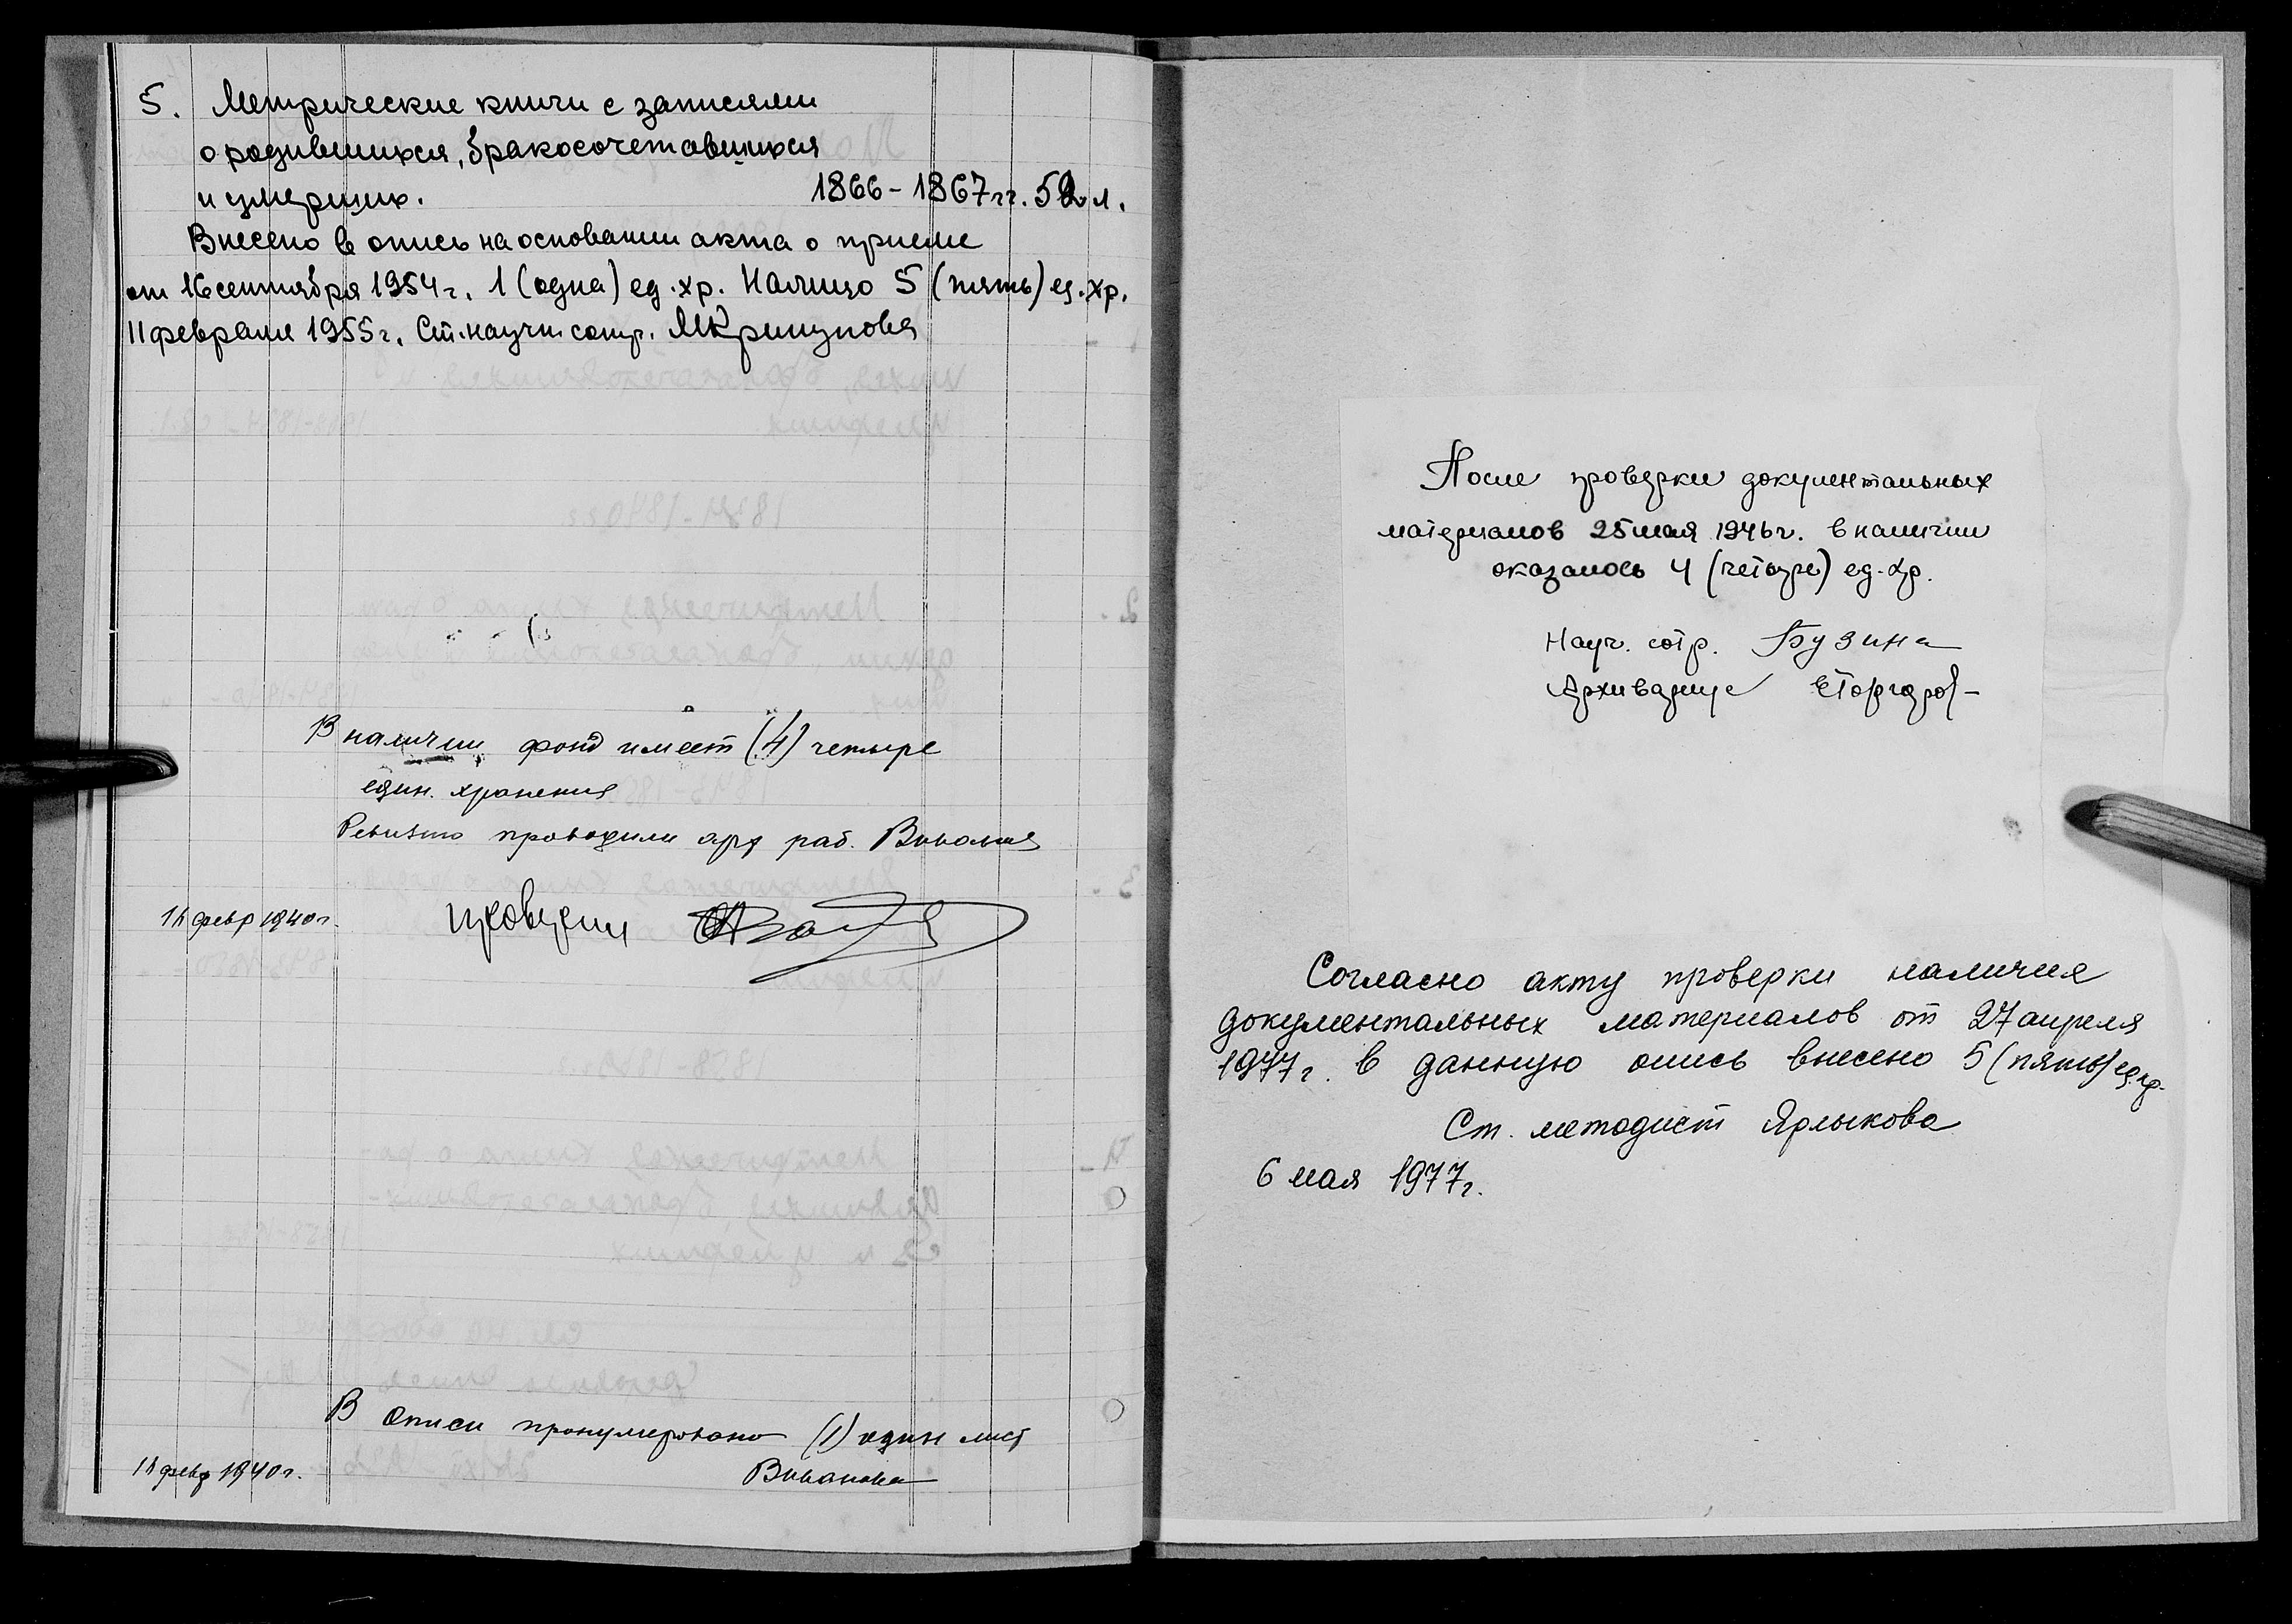 5. Метрические книги с записями
о родившихся, бракосочетавшихся
и умерших. 1866-1867 гг. 52 л.
Внесено в опись на основании акта о приеме
от 16 сентября 1954 г. 1 (одна) ед. хр. Налицо 5 (пять) ед. хр.
11 февраля 1955 г. Ст. научн. сотр. МКришунова
В наличии фонд имеет (4) четыре
един. хранения
проводили арх раб.
февр 1940 г.
В описи пронумеровано (1) один лист
февр 1940 г.
После проверки документальных
материалов 25 мая 1946 г. в наличии
оказалось 4 (четыре) ед. хр.
Науч. сотр. Бузина
Архивариус
Согласно акту проверки наличия
документальных материалов от 27 апреля
1977 г. в данную опись внесено 5 (пять) ед. хр.
Ст. методист Ярлыкова
6 мая 1977 г.